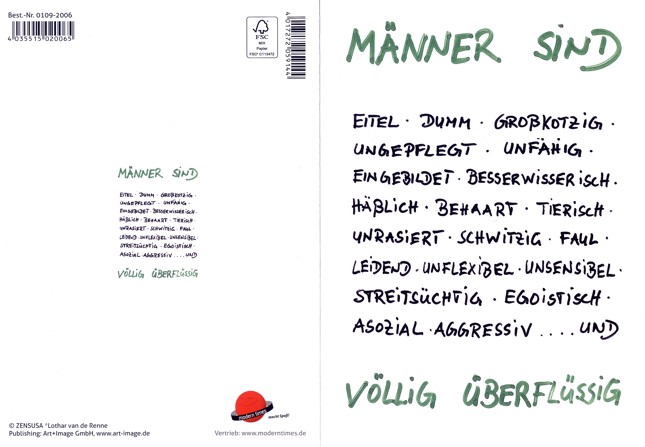 Best.-Nr. 0109-2006
4 035515 020065
FSC
MIX
Papier
4 017272 059144
MÄNNER SIND
EITEL · DUMM · GROßKOTZIG ·
UNGEPFLEGT · UNFÄHIG ·
EINGEBILDET · BESSERWISSERISCH ·
HÄßLICH · BEHAART · TIERISCH ·
UNRASIERT · SCHWITZIG · FAUL ·
LEIDEND · UNFLEXIBEL · UNSENSIBEL ·
STREITSÜCHTIG · EGOISTISCH ·
ASOZIAL AGGRESSIV .... UND
VÖLLIG ÜBERFLÜSSIG
modern times
macht Spaß!
© ZENSUSA *Lothar van de Renne
Publishing: Art+Image GmbH, www.art-image.de
Vertrieb: www.moderntimes.de
MÄNNER SIND
EITEL · DUMM · GROßKOTZIG ·
UNGEPFLEGT · UNFÄHIG ·
EINGEBILDET · BESSERWISSERISCH ·
HÄßLICH · BEHAART · TIERISCH ·
UNRASIERT · SCHWITZIG · FAUL ·
LEIDEND · UNFLEXIBEL · UNSENSIBEL ·
STREITSÜCHTIG · EGOISTISCH ·
ASOZIAL · AGGRESSIV .... UND
VÖLLIG ÜBERFLÜSSIG